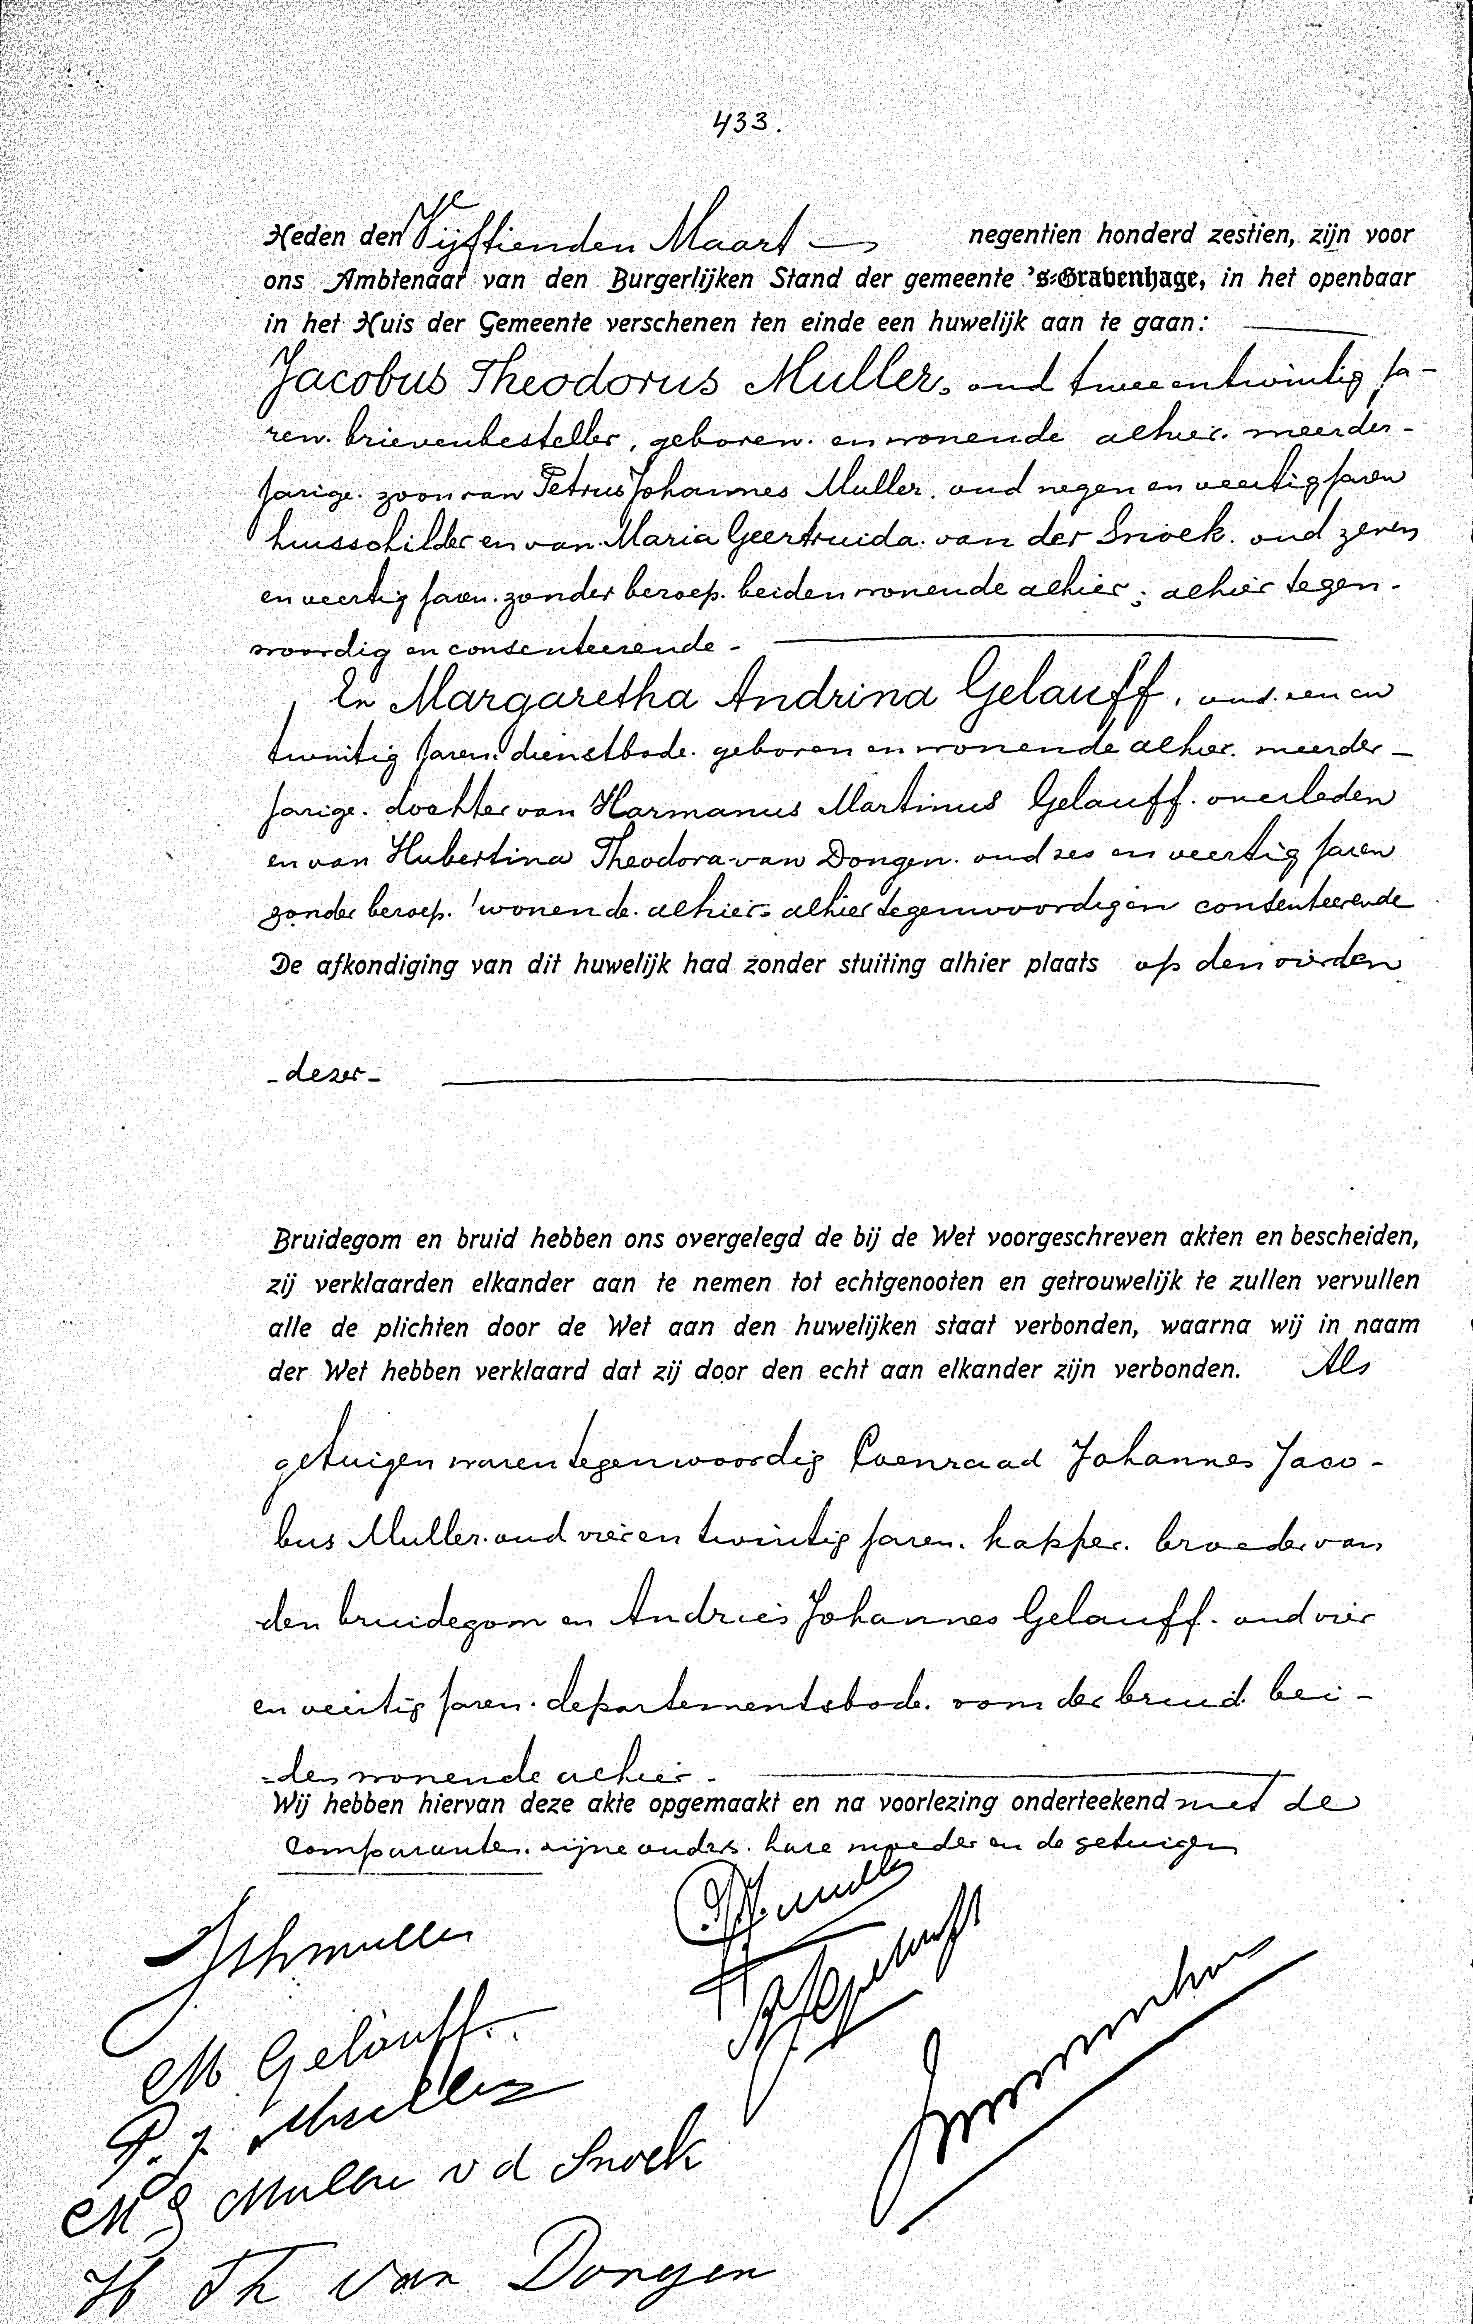 433.
Heden den Vijftienden Maart — negentien honderd zestien, zijn voor
ons Ambtenaar van den Burgerlijken Stand der gemeente 's-Gravenhage, in het openbaar
in het Huis der Gemeente verschenen ten einde een huwelijk aan te gaan:
Jacobus Theodorus Muller, oud twee en twintig ja-
ren. brievenbesteller, geboren en wonende alhier. meerder-
jarige zoon van Petrus Johannes Muller. oud negen en veertig jaren
huisschilder en van Maria Geertruida van der Snoek. oud zeven
en veertig jaren. zonder beroep. beiden wonende alhier; alhier tegen-
woordig en consenteerende -
En Margaretha Andrina Gelauff, oud een en
twintig jaren. dienstbode. geboren en wonende alhier. meerder-
jarige dochter van Harmanus Martinus Gelauff. overleden
en van Hubertina Theodora van Dongen. oud zes en veertig jaren
zonder beroep. wonende alhier. alhier tegenwoordig en consenteerende
De afkondiging van dit huwelijk had zonder stuiting alhier plaats op den vierden
- dezer -
Bruidegom en bruid hebben ons overgelegd de bij de Wet voorgeschreven akten en bescheiden,
zij verklaarden elkander aan te nemen tot echtgenooten en getrouwelijk te zullen vervullen
alle de plichten door de Wet aan den huwelijken staat verbonden, waarna wij in naam
der Wet hebben verklaard dat zij door den echt aan elkander zijn verbonden. Als
getuigen waren tegenwoordig Coenraad Johannes Jaco-
bus Muller. oud vier en twintig jaren. kapper. broeder van
den bruidegom en Andries Johannes Gelauff. oud vier
en veertig jaren. departementsbode. oom der bruid. bei-
=den wonende alhier -
Wij hebben hiervan deze akte opgemaakt en na voorlezing onderteekend met de
comparanten. zijne ouders. hare moeder en de getuigen
JThMuller
CJJ Muller
M Gelauff
AJGelauff
P. J. Muller
M G Muller v d Snoek
H Th van Dongen